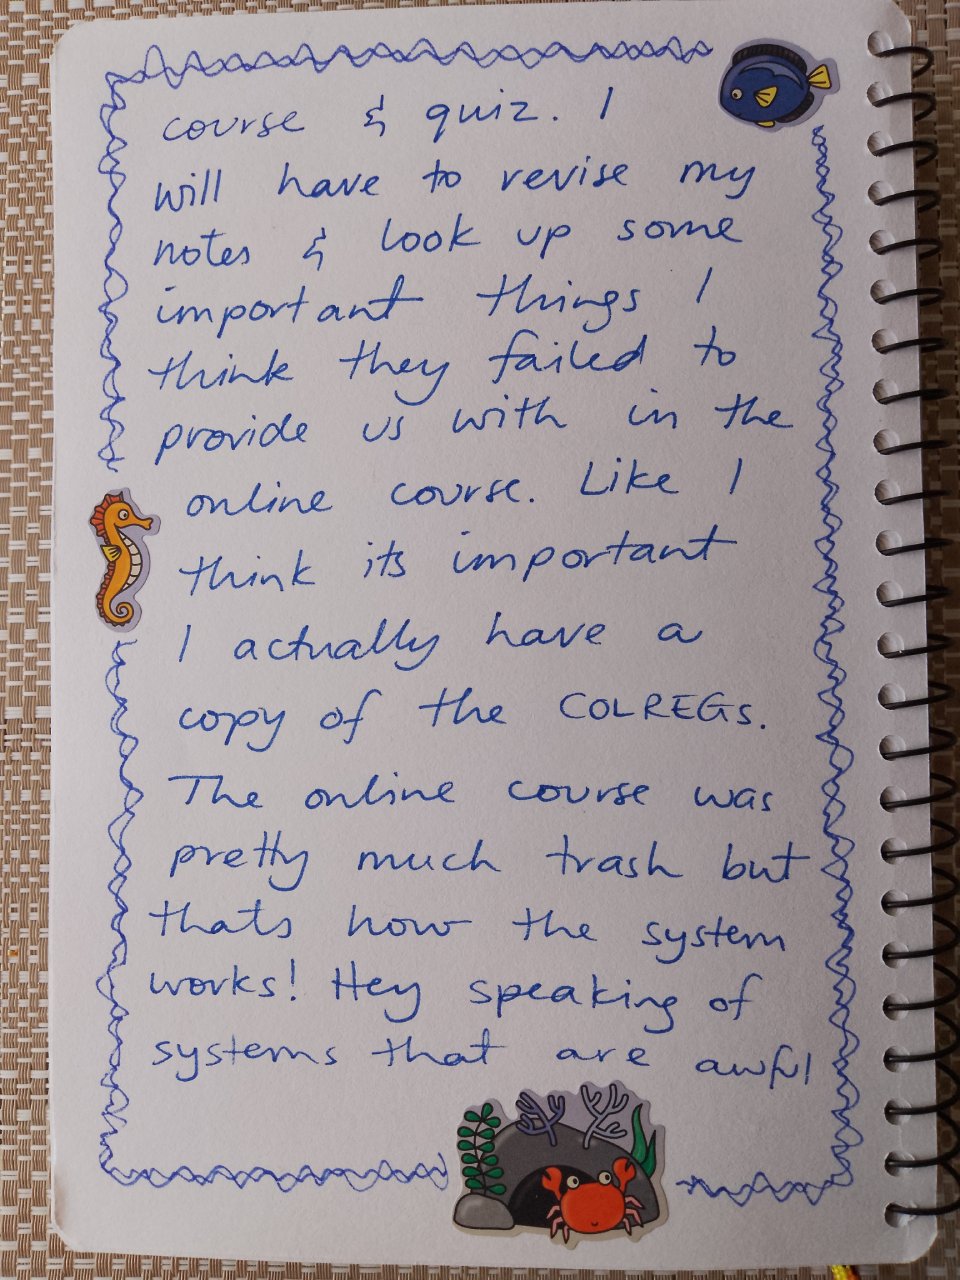 course & quiz. I
will have to revise my
notes & look up some
important things I
think they failed to
provide us with in the
online course. Like I
think its important
I actually have a
copy of the COLREGs.
The online course was
pretty much trash but
thats how the system
works! Hey speaking of
systems that are awful